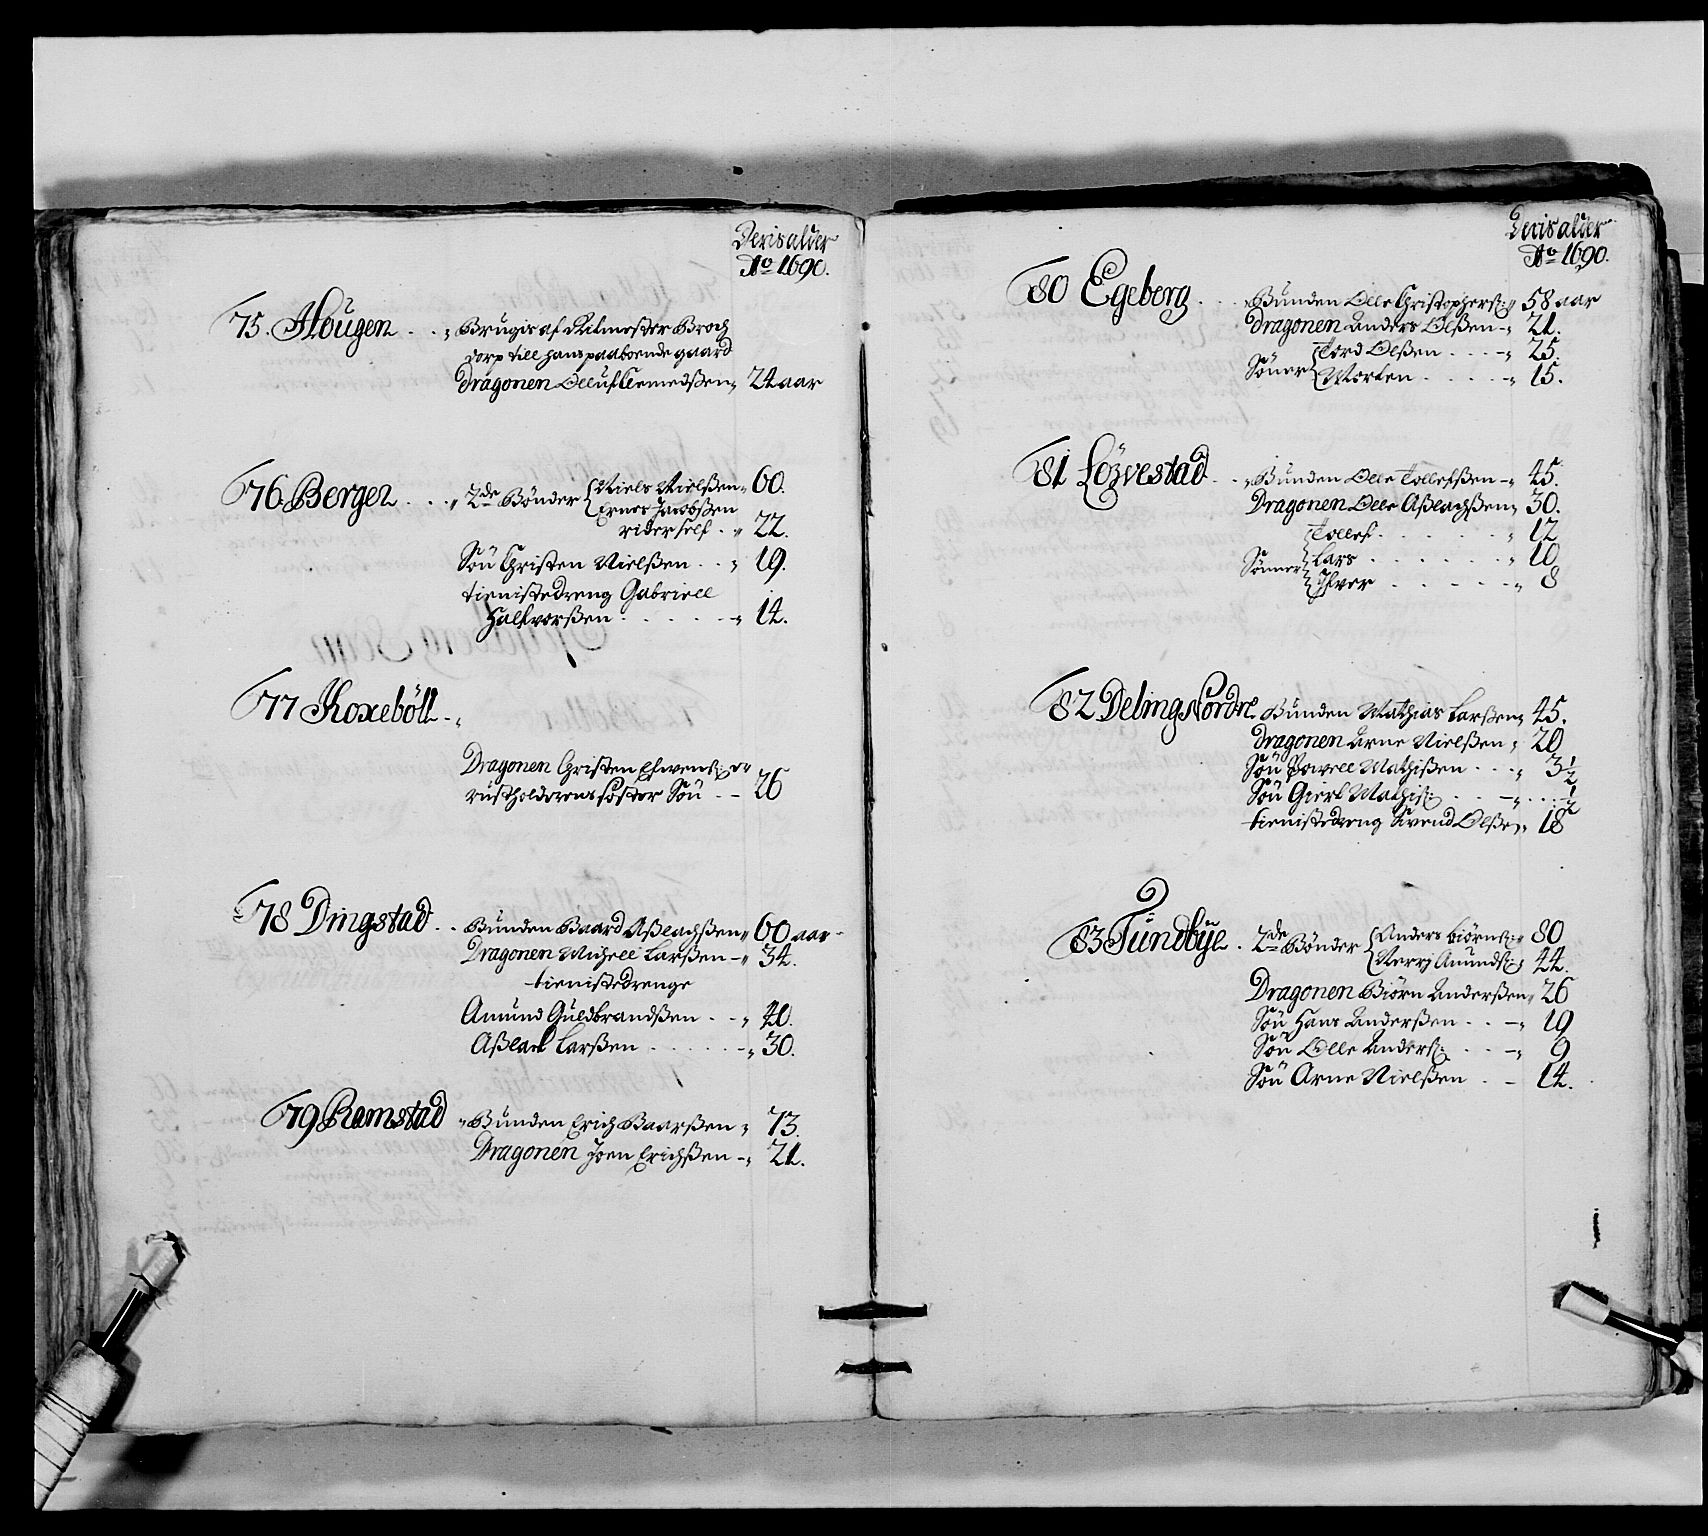 Deris alder
Ao 1690.
75. Hougen . . „ Brugis af Ritmester Broch
dorp till hans paaboende gaard
Dragonen Olluf Clemedsßen „ 24 aar
76 Bergen . . . „ 2de Bønder { Niels Nielßen „ 60.
Ernes Jacobßen
rider self . „ 22.
Søn Christen Nielßen . . „ 19.
tienistedreng Gabriell
Halfvorßen . . . . . „ 14.
77 Koxeböll - „
Dragonen Christen Efwens: er
rustholderens søster Søn . - - 26
78 Dingstad . . Bunden Baard Aßlachßen „ 60 aar -
Dragonen Michell Larßen - „ 34.
tienistedrenge
Amund Guldbrandßen . . „ 40.
Aßlack Larßen . . . . . - „ 30.
79 Ramstad „ Bunden Erich Baarßen „ 73.
Dragonen Joen Erichßen - „ 21.
Deris alder
Ao 1690.
80 Egeberg . . . „ Bunden Olle Christophers: „ 58 aar
Dragonen Anders Olßen - „ 21.
Sönner { Tord Olßen . . . - „ 25.
Morten . . . . . - „ 15.
81 Lözvestad . . „ Bunden Olle Tollefßen - „ 45.
Dragonen Olle Aßlachßen „ 30.
Tollef . . . . . . „ 12
Sønner { Lars . . . . . . . „ 10
Ifver . . . . . . - „ 8
82 Deling Nordre Bunden Mathias Larßen „ 45.
Dragonen Arne Nielßen „ 20
Søn Powell Mathißen . . . „ 3½
Søn Giert Mathis: . . . - „ . . . ½
tienistedreng Svend Olßen „ 18
83 Tundbye . 2de Bønder { Anders biørns: „ 80
Verrj Amunds: „ 44.
Dragonen Biørn Anderßen „ 26
Søn Hans Anderßen . . . - „ 19
Søn Olle Anders: . . . - „ 9
Søn Arne Nielßen . . - 14.